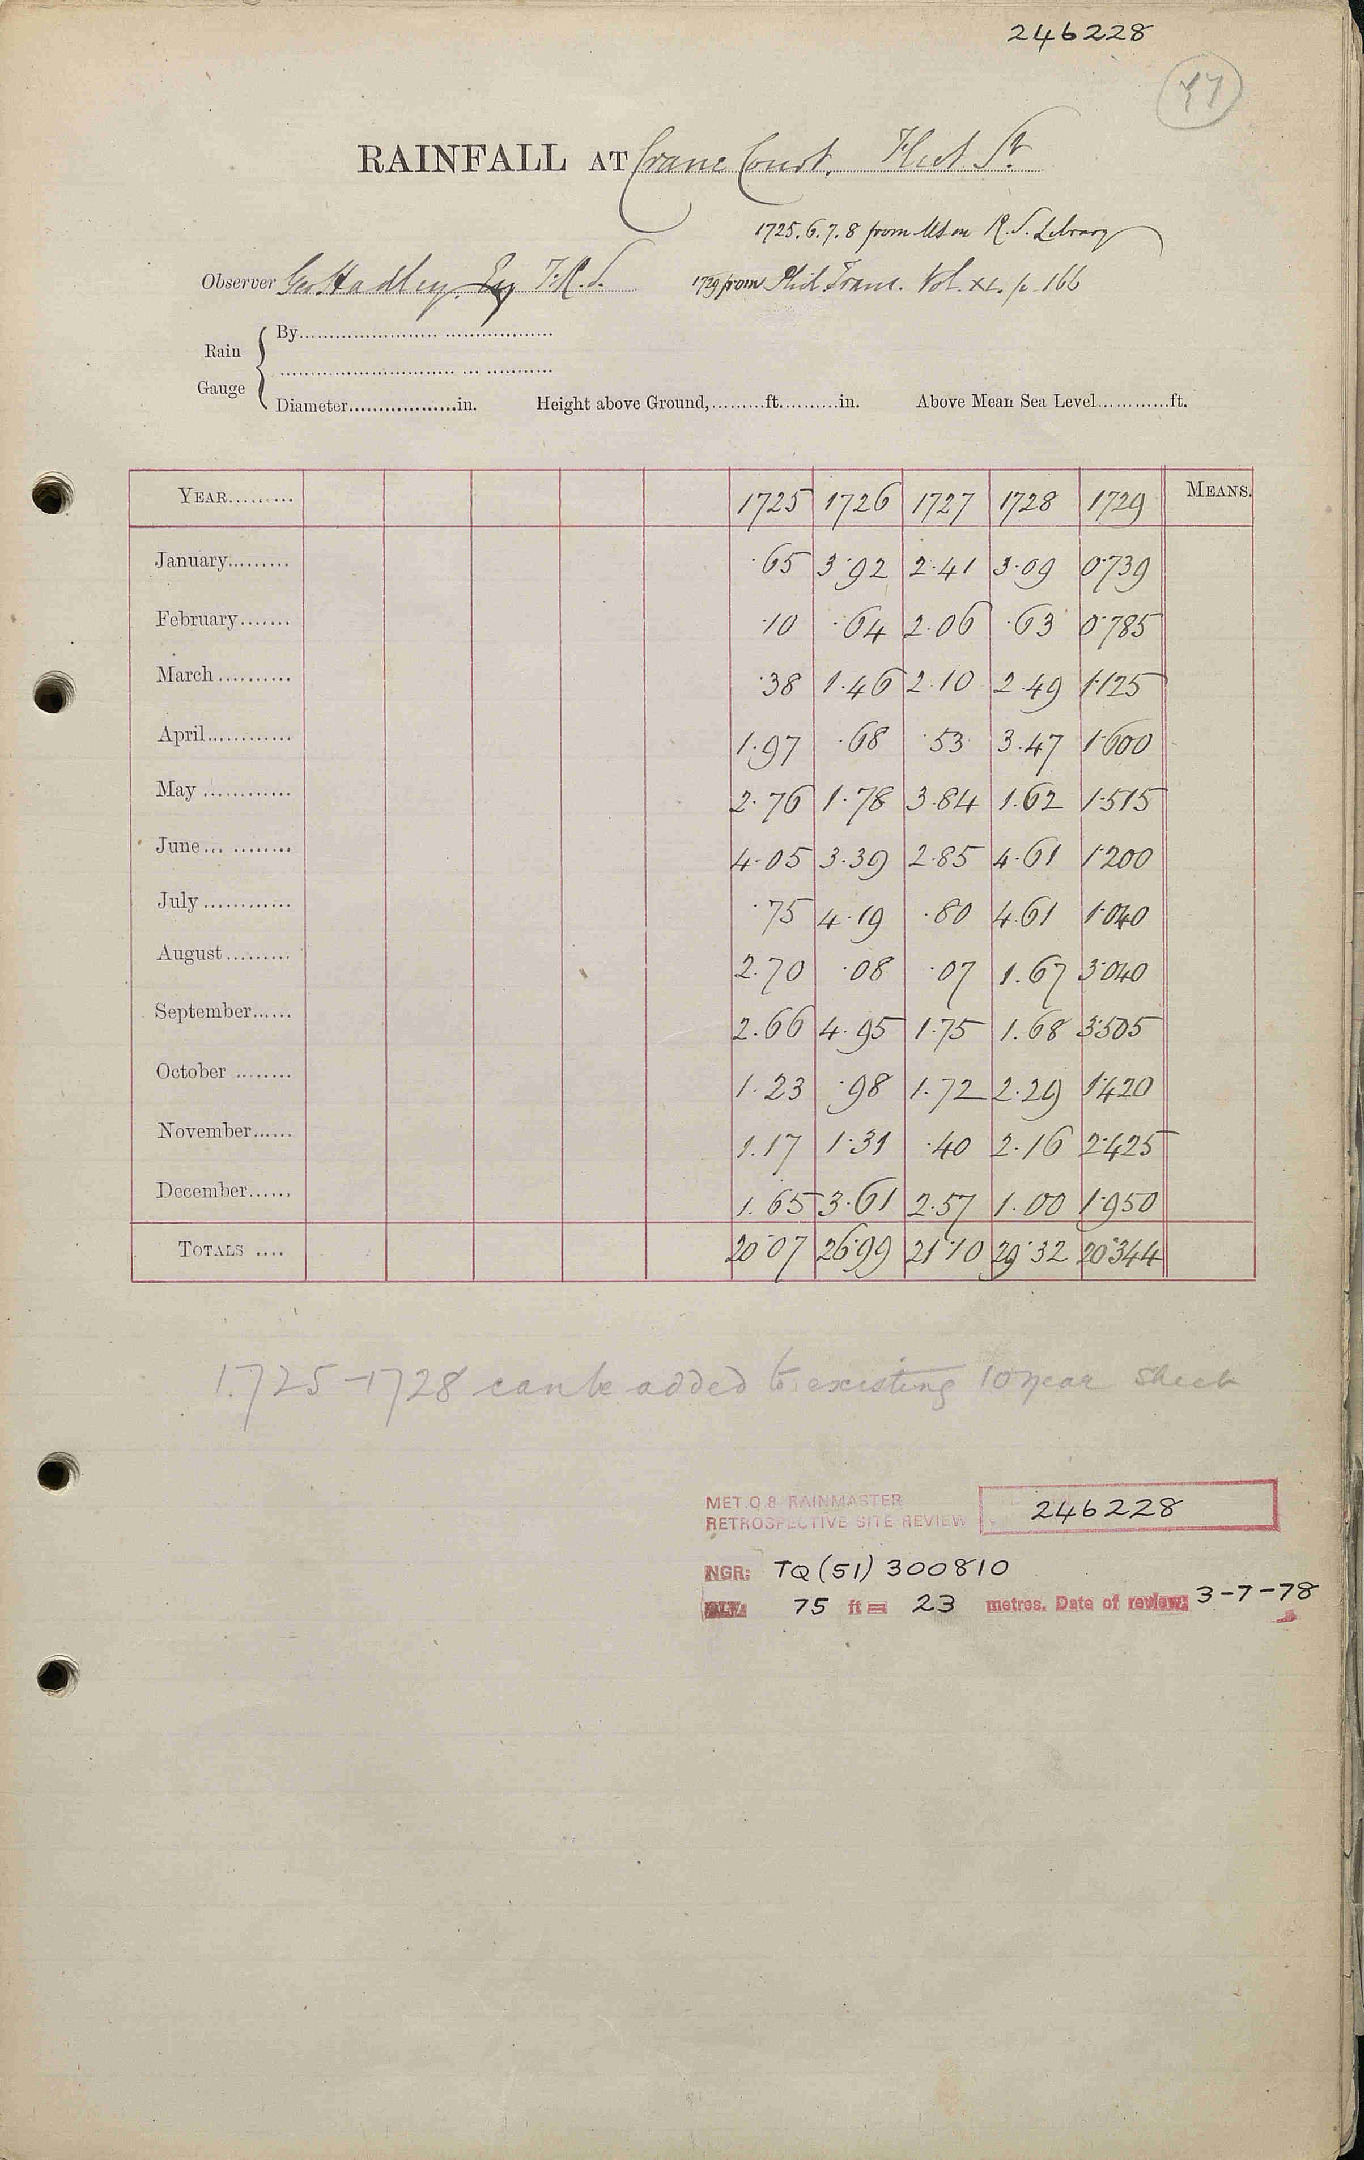 246228
47
RAINFALL AT Crane Court, Fleet St.
1725.6.7.8 from MS in R.S. Library
Observer Geo Hadley, Esq F.R.S. 1729 from Phil Trans. Vol. XL. p. 166
Rain Gauge { By
Diameter in. Height above Ground, ft. in. Above Mean Sea Level ft.
YEAR 1725 1726 1727 1728 1729 MEANS.
January ·65 3·92 2·41 3·09 0·739
February ·10 ·64 2·06 ·63 0·785
March ·38 1·46 2·10 2·49 1·125
April 1·97 ·68 ·53 3·47 1·600
May 2·76 1·78 3·84 1·62 1·515
June 4·05 3·39 2·85 4·61 1·200
July ·75 4·19 ·80 4·61 1·040
August 2·70 ·08 ·07 1·67 3·040
September 2·66 4·95 1·75 1·68 3·505
October 1·23 ·98 1·72 2·29 1·420
November 1·17 1·31 ·40 2·16 2·425
December 1·65 3·61 2·57 1·00 1·950
TOTALS 20·07 26·99 21·10 29·32 20·344
1725-1728 can be added to existing 10 year sheet
MET.O.8 RAINMASTER
RETROSPECTIVE SITE REVIEW 246228
NGR: TQ (51) 300810
ALT: 75 ft = 23 metres. Date of review: 3-7-78